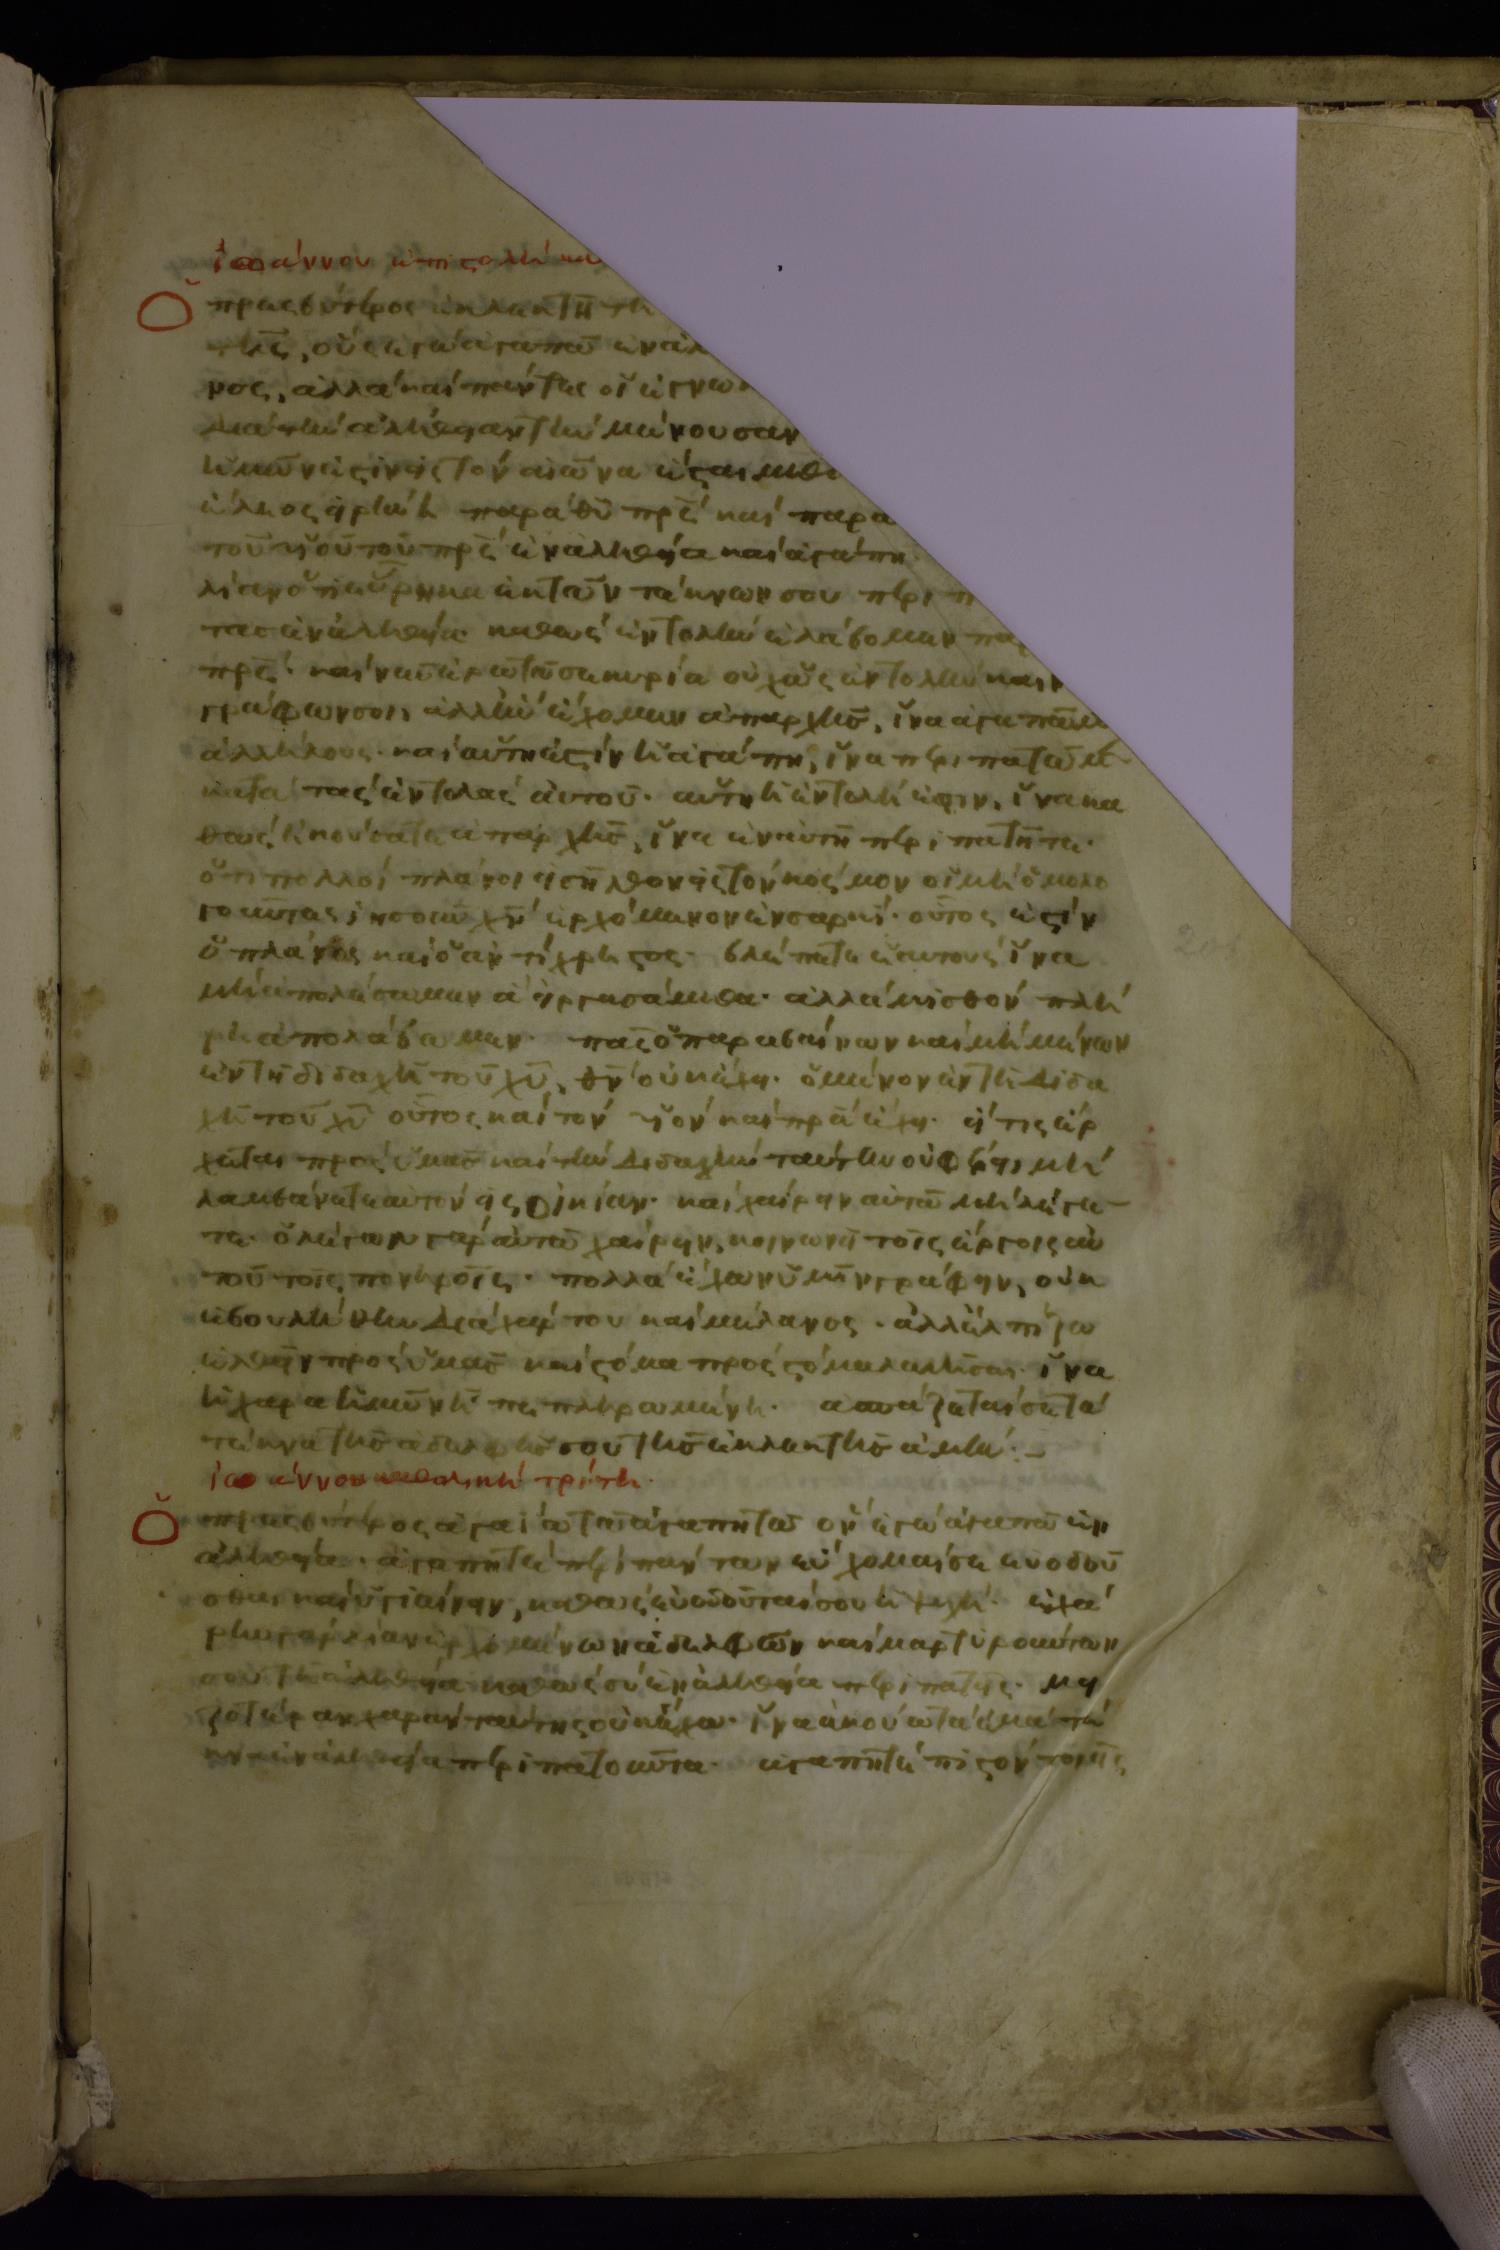 ἰωάννου ἐπιστολὴ κα
Ὁ πρεσβύτερος ἐκλεκτῆ
οὓς ἐγὼ ἀγαπῶ ἐν ἀλ
νος, ἀλλὰ καὶ πάντες οἱ ἐγνω
διὰ τὴν ἀλήθειαν τὴν μένουσαν
ἡμῶν ἐστιν εἰς τὸν αἰῶνα ἔσται μεθ
ἔλεος εἰρήνη παρὰ θυ πρς καὶ παρα
τοῦ υἱοῦ τοῦ πρς ἐν ἀληθεία καὶ ἀγάπη
λίαν ὅτι εὕρηκα ἐκ τῶν τέκνων σου περιπ
τας ἐν ἀληθεία καθὼς ἐντολὴν ἐλάβομεν πα
πρς καὶ νῦν ἐρωτῶ σε κυρία οὐχ ὡς ἐντολὴν καιν
γράφων σοι, ἀλλ' ἣν εἴχομεν ἀπαρχῆς, ἵνα ἀγαπῶμε
ἀλλήλους. καὶ αὕτη ἐστὶν ἡ ἀγάπη, ἵνα περιπατῶμε
κατὰ τὰς ἐντολὰς αὐτοῦ. αὕτη ἡ ἐντολή ἐστιν, ἵνα κα
θὼς ἠκούσατε ἀπαρχῆς, ἵνα ἐν αὐτῆ περιπατῆτε.
ὅτι πολλοὶ πλάνοι εἰσῆλθον εἰς τὸν κόσμον οἱ μὴ ὁμολο
γοῦντες ἰησοῦν χν ἐρχόμενον ἐν σαρκί. οὗτος ἐστὶν
ὁ πλάνος καὶ ὁ ἀντίχρηστος. βλέπετε ἑαυτοὺς ἵνα
μὴ ἀπολέσωμεν ἃ εἰργασάμεθα. ἀλλὰ μισθὸν πλή
ρη ἀπολάβωμεν. πᾶς ὁ παραβαίνων καὶ μὴ μένων
ἐν τῆ διδαχῆ τοῦ χυ, θν οὐκ ἔχει. ὁ μένον ἐν τῆ διδα
χῆ τοῦ χυ οὗτος καὶ τὸν υἱὸν καὶ πρα ἔχει. εἴ τις ἔρ
χεται πρὸς ὑμᾶς καὶ τὴν διδαχὴν ταύτην οὐ φέρει μὴ
λαμβάνετε αὐτὸν εἰς οἰκίαν. καὶ χαίρειν αὐτῶ μὴ λέγε
τε. ὁ λέγων γὰρ αὐτῶ χαίρειν, κοινωνεῖ τοῖς ἔργοις αὐ
τοῦ τοῖς πονηροῖς. πολλὰ ἔχων ὑμῖν γράφειν, οὐκ
ἐβουλήθην διὰ χάρτου καὶ μέλανος. ἀλλ' ἐλπίζω
ἐλθεῖν πρὸς ὑμᾶς καὶ στόμα πρὸς στόμα λαλῆσαι. ἵνα
ἡ χαρὰ ἡμῶν ἦ πεπληρωμένη. ἀσπάζεταί σε τὰ
τέκνα τῆς ἀδελφῆς σου τῆς ἐκλεκτῆς ἀμήν:
ἰωάννου καθολικὴ τρίτη.
Ὁ πρεσβύτερος γαΐω τῶ ἀγαπητῶ ὃν ἐγὼ ἀγαπῶ ἐν
ἀληθεία. ἀγαπητὲ περὶ πάντων εὔχομαί σε εὐοδοῦ
σθαι καὶ ὑγιαίνειν, καθὼς εὐοδοῦταί σου ἡ ψυχή. ἐχά
ρην γὰρ λίαν ἐρχομένων ἀδελφῶν καὶ μαρτυρούντων
σου τῆ ἀληθεία καθὼς σὺ ἐν ἀληθεία περιπατεῖς. μει
ζοτέραν χαρὰν ταύτης οὐκ ἔχω. ἵνα ἀκούω τὰ ἐμὰ τέ
κνα ἐν ἀληθεία περιπατοῦντα. ἀγαπητὲ πιστὸν ποιεῖς